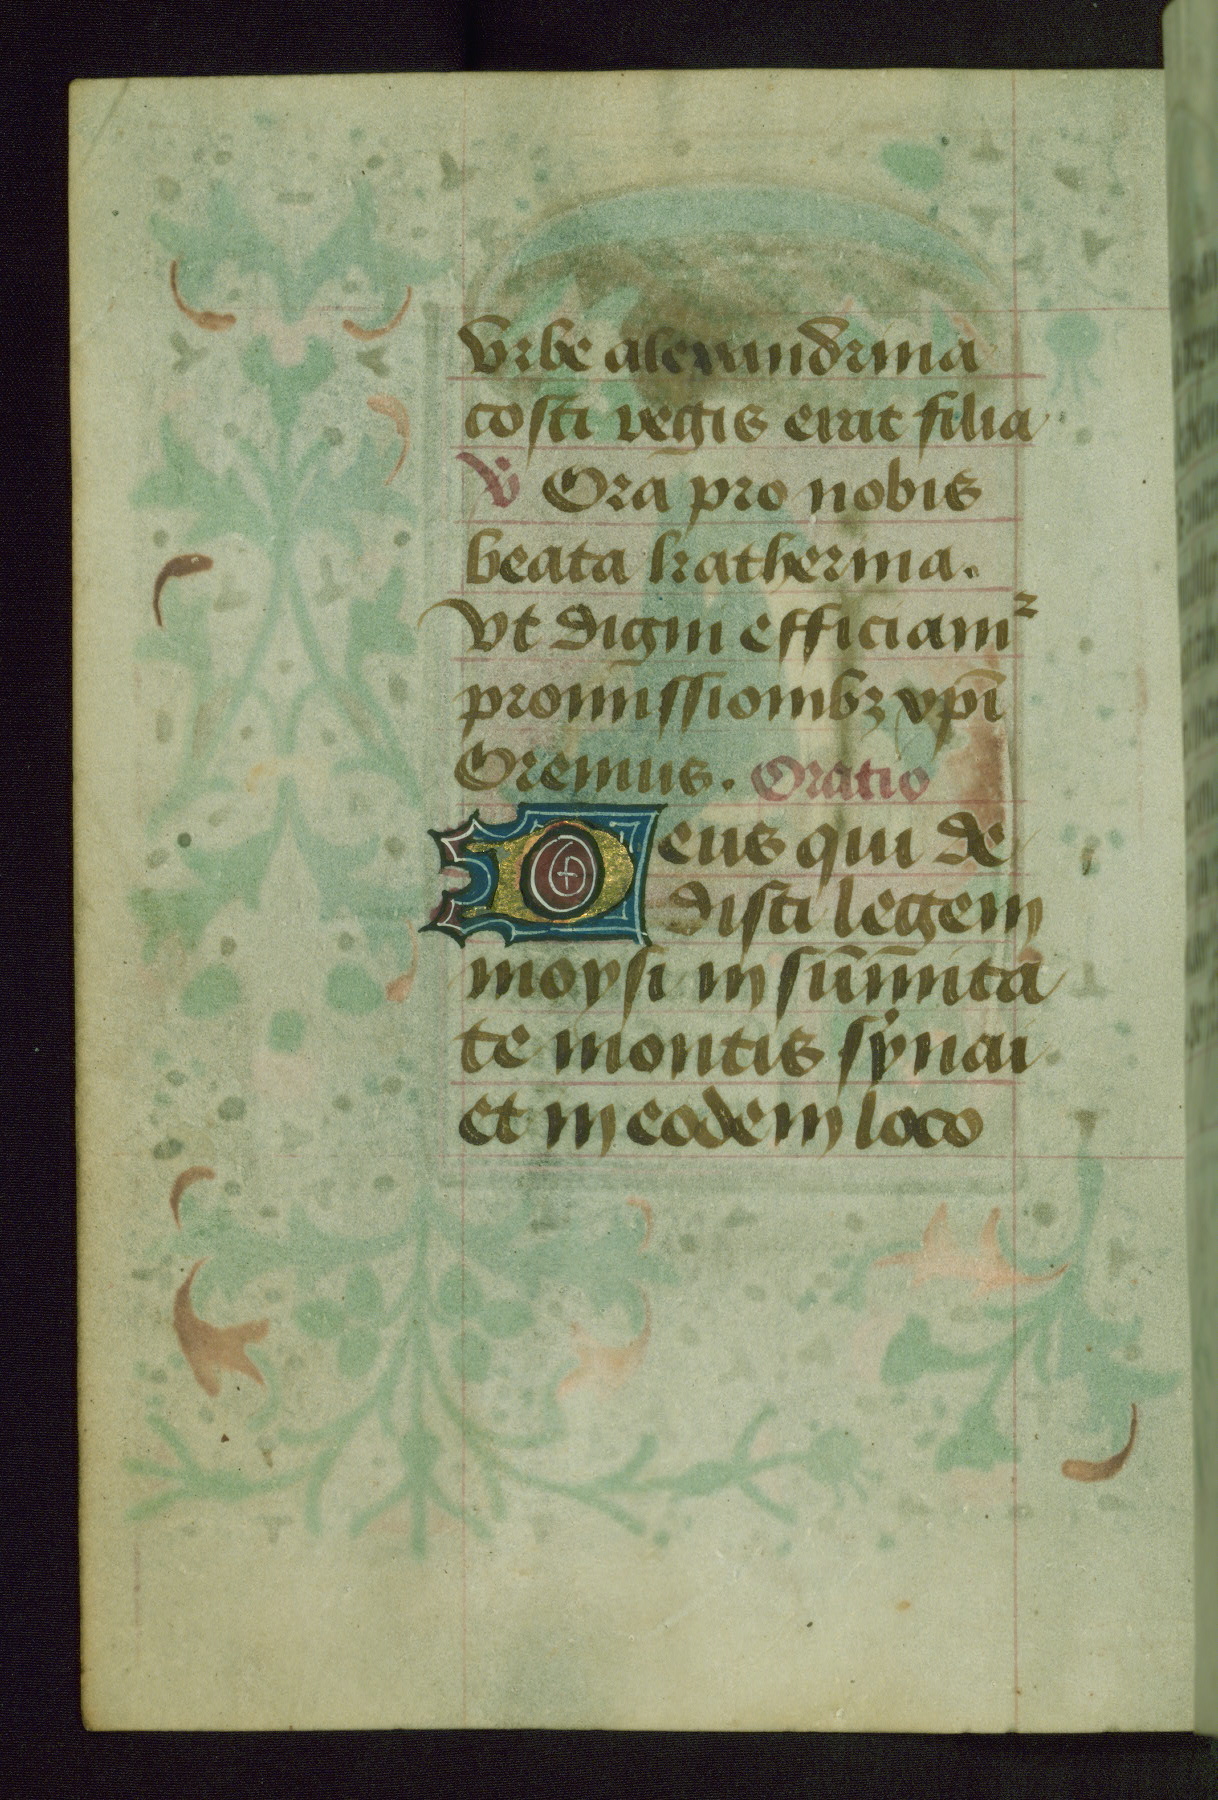 Vrbe alexandrina
costi regis erat filia
V Ora pro nobis
beata katherina.
Vt digni efficiamꝛ
promissionibꝫ xp̄i
Oremus. Oratio
Deus qui de
disti legem
moysi in sūm̄ita
te montis sẏnai
et in eodem loco